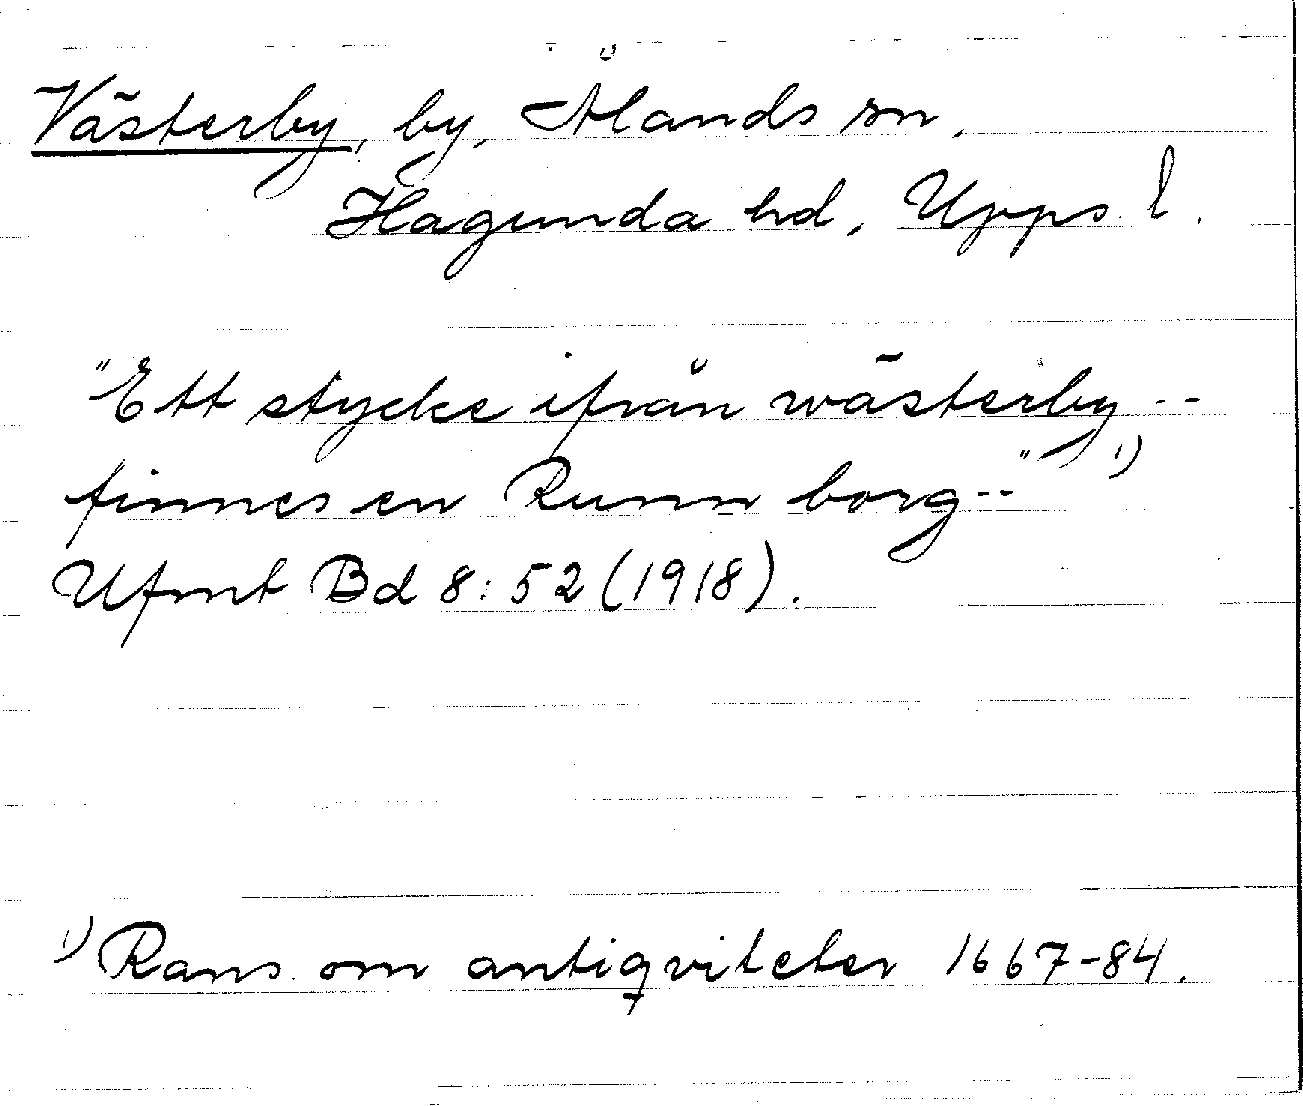 Västerby, by, Ålands sn,
Hagunda hd, Upps. l.
"Ett stycke ifrån wästerby --
finnes en Runn borg --" 1)
Ufmt Bd 8:52 (1918).
1) Rans. om antiqviteter 1667-84.